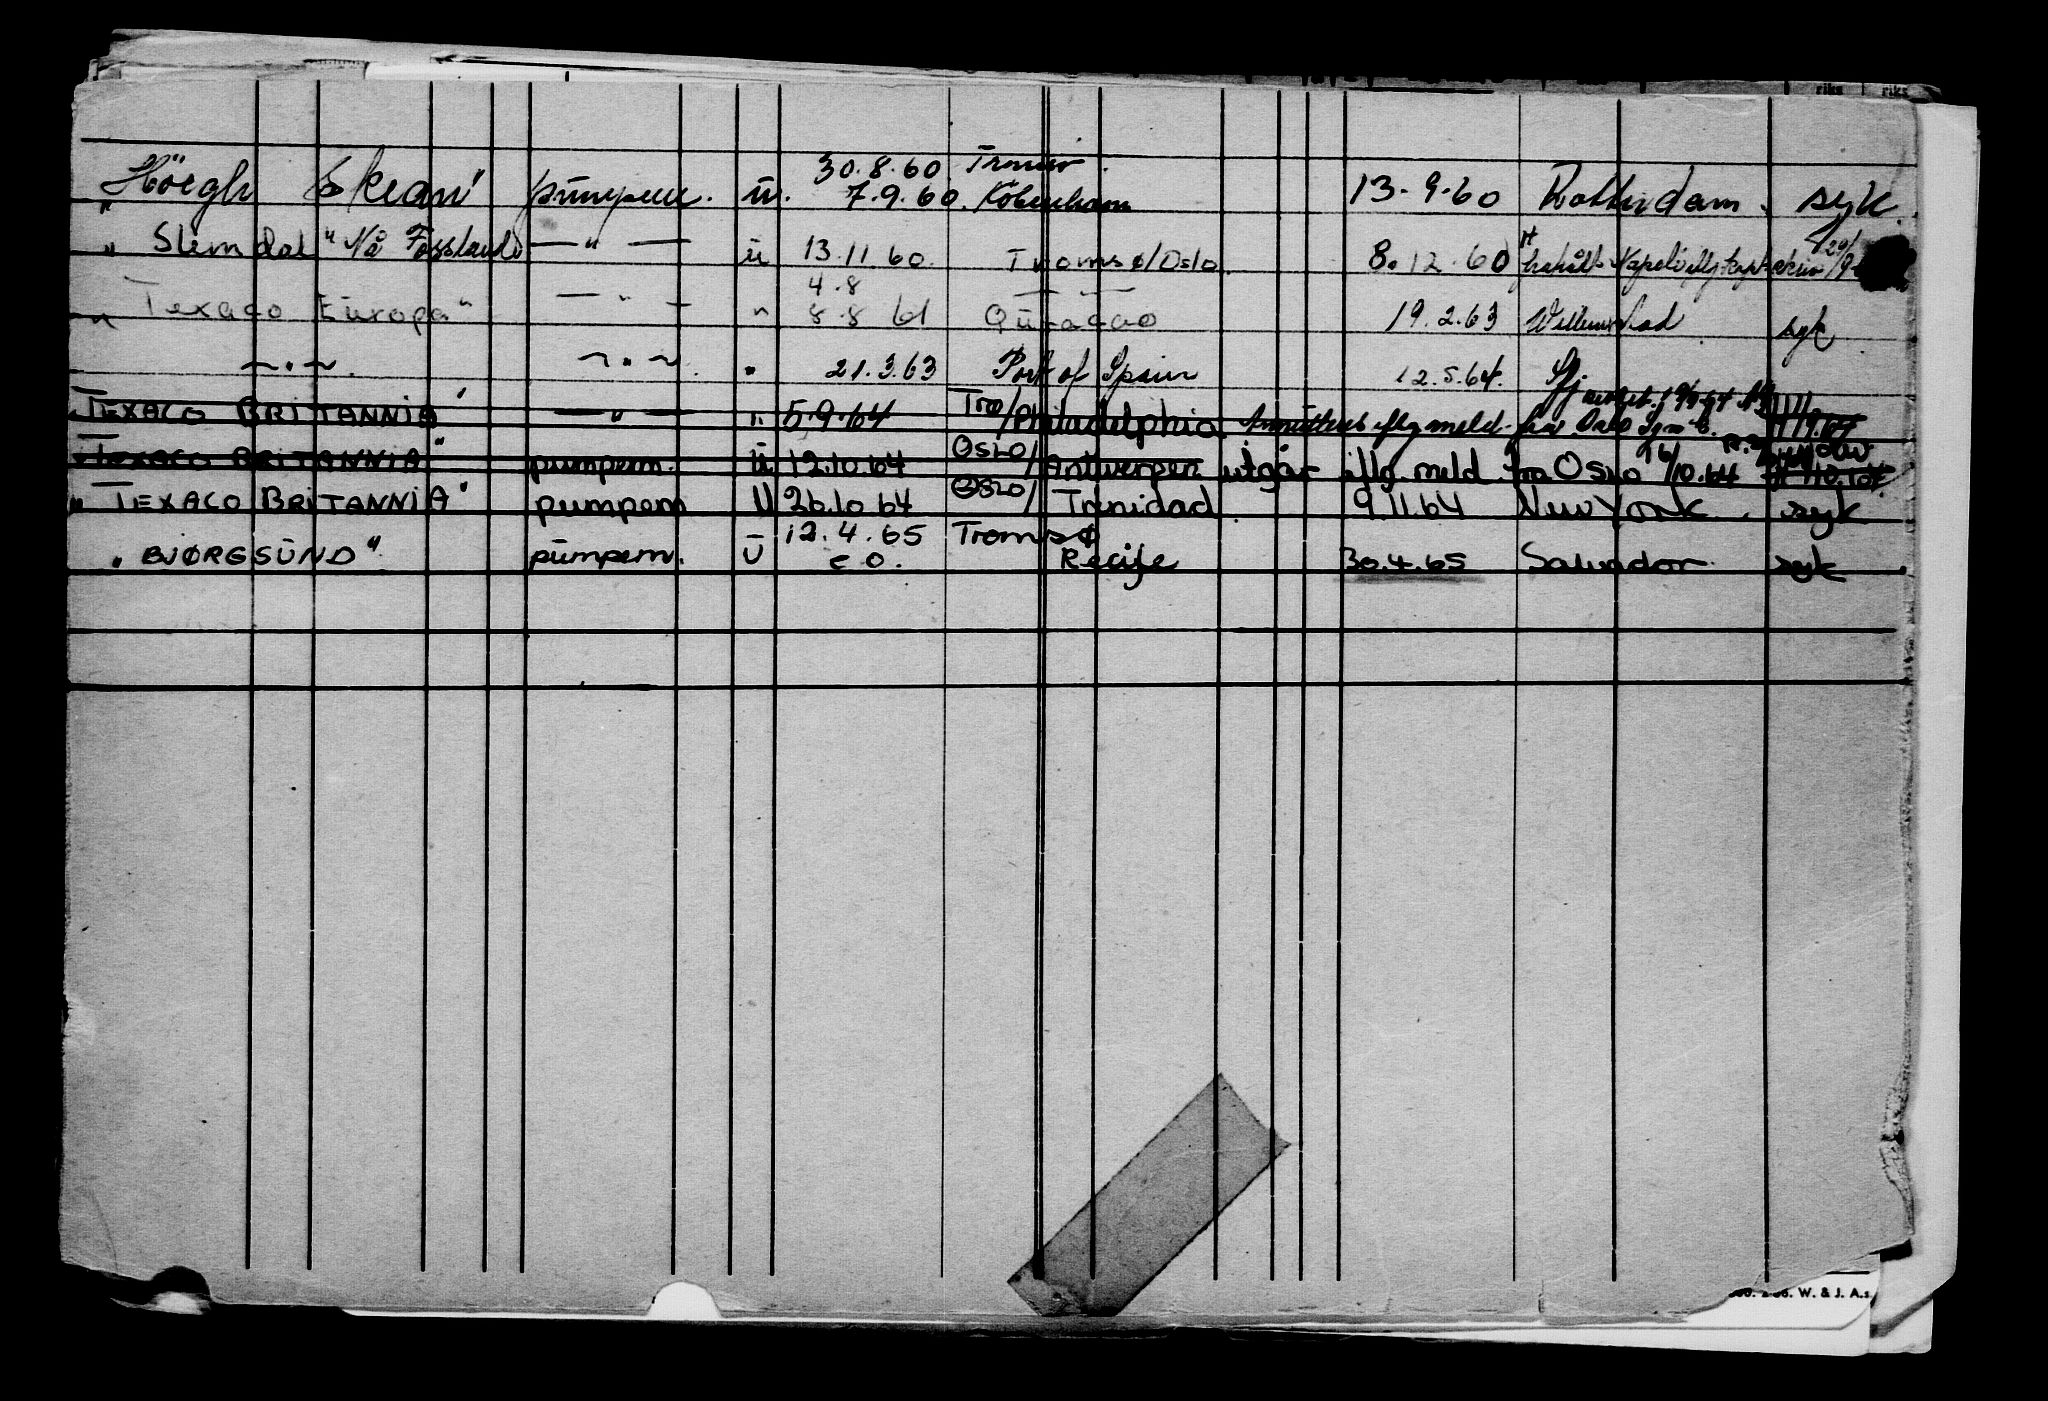 riks riks
30.8.60 Tromsø
"Höegh Skean" pumpem. u. 7.9.60. København 13-9-60 Rotterdam. syk.
" Slemdal" Nå Fossland — " — u 13.11.60. Tromsø/Oslo 8.12.60
4.8 — —
" Texaco Europa" — " — " 8.8 61 Curacao 19.2.63 Willemstad syk
— " — — " — " 21.3.63 Port of Spain 12.5.64. Sfj.
"TEXACO BRITTANNIA" — " — " 5.9.64 Trø/Philadelphia iflg meld. fra Oslo
"TEXACO BRITANNIA" pumpem. u 12.10.64 OSLO/Antwerpen utgår iflg. meld. fra OSLO 16/10.64
" TEXACO BRITANNIA" pumpem U 26.10.64 OSLO/Trinidad 9.11.64 New York. syk
12.4.65 Tromsø
" BJØRGSUND" pumpem. U c o. Recife 30.4.65 Salvador. syk
W. & J. A.s.